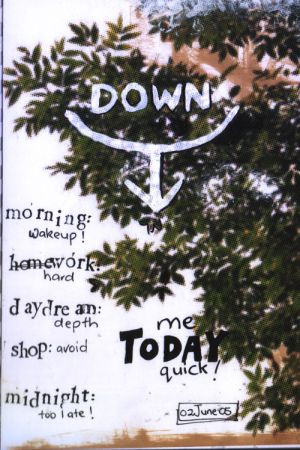 DOWN
morning:
wakeup!
homework:
hard
daydream:
depth
shop: avoid
midnight:
too late!
me
TODAY
quick!
02 June '05